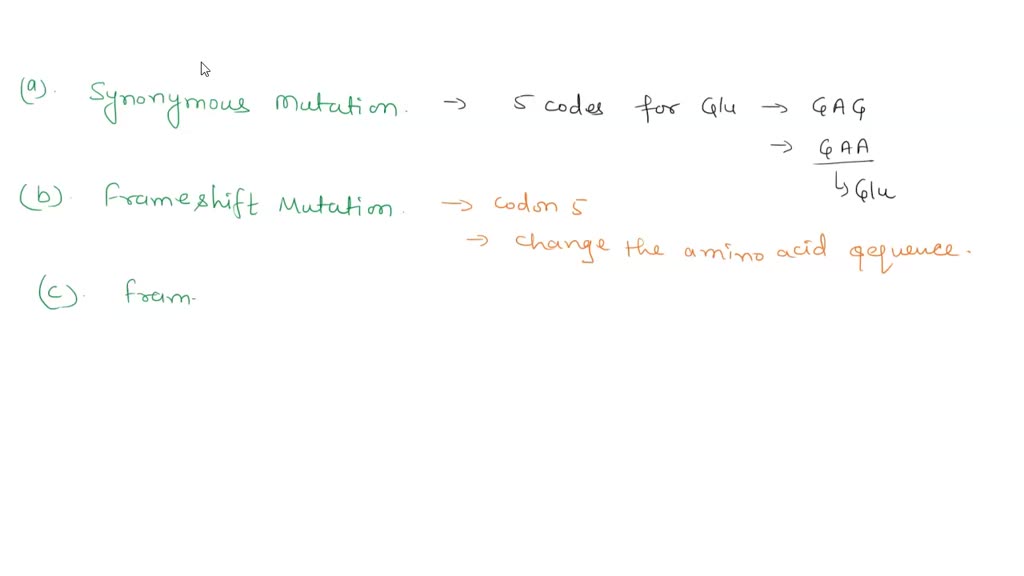 (a). Synonymous Mutation. → 5 codes for Glu → GAG
→ GAA
↳ Glu
(b). Frameshift Mutation. → codon 5
→ change the amino acid qequence.
(c). fram.